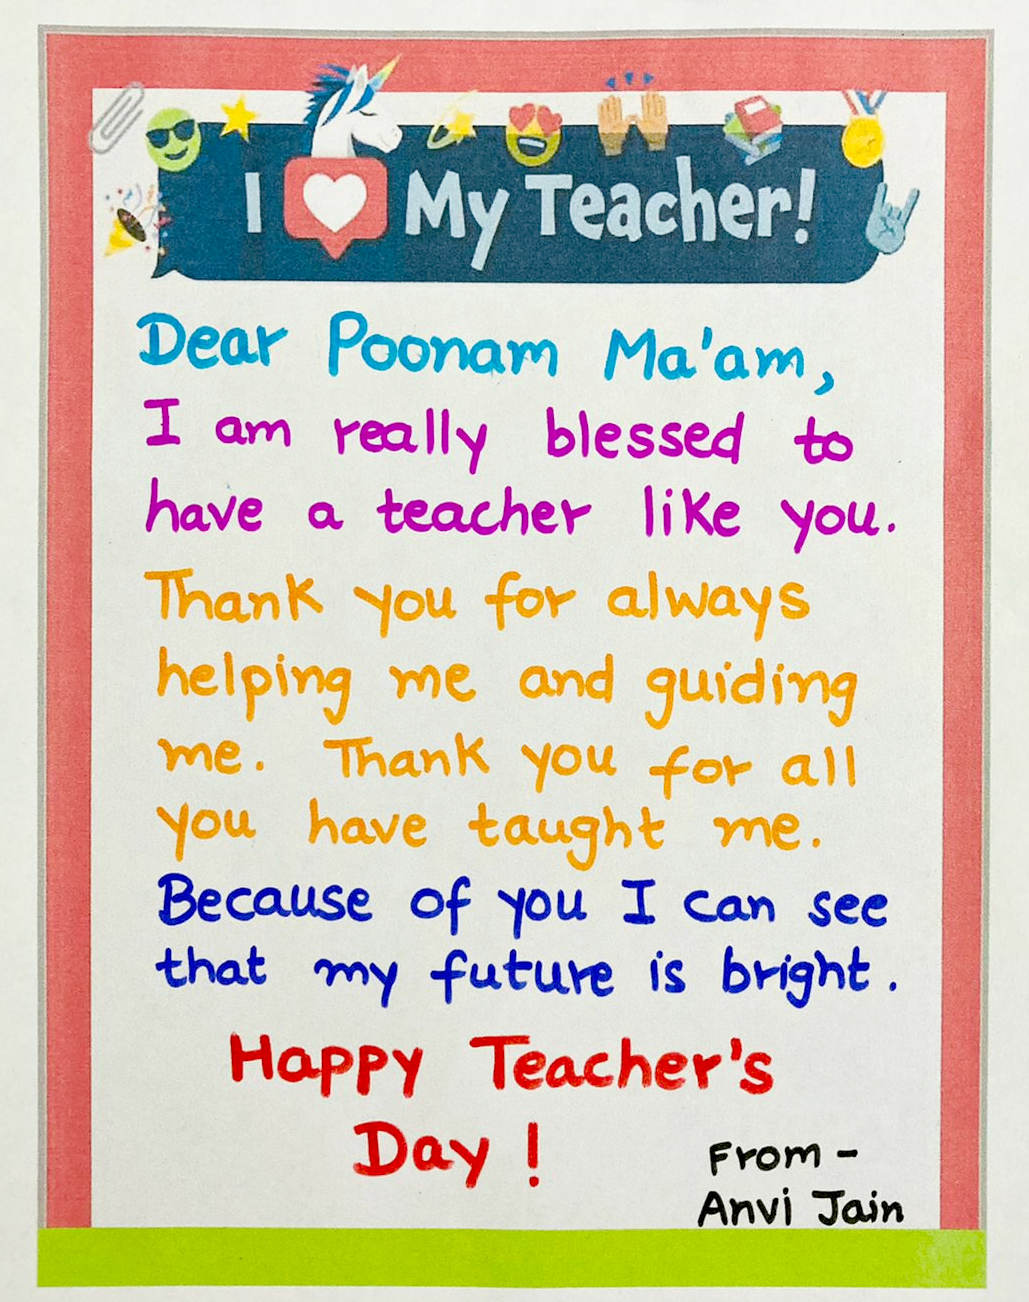 I My Teacher!
Dear Poonam Ma'am,
I am really blessed to
have a teacher like you.
Thank you for always
helping me and guiding
me. Thank you for all
you have taught me.
Because of you I can see
that my future is bright.
Happy Teacher's
Day !
From -
Anvi Jain